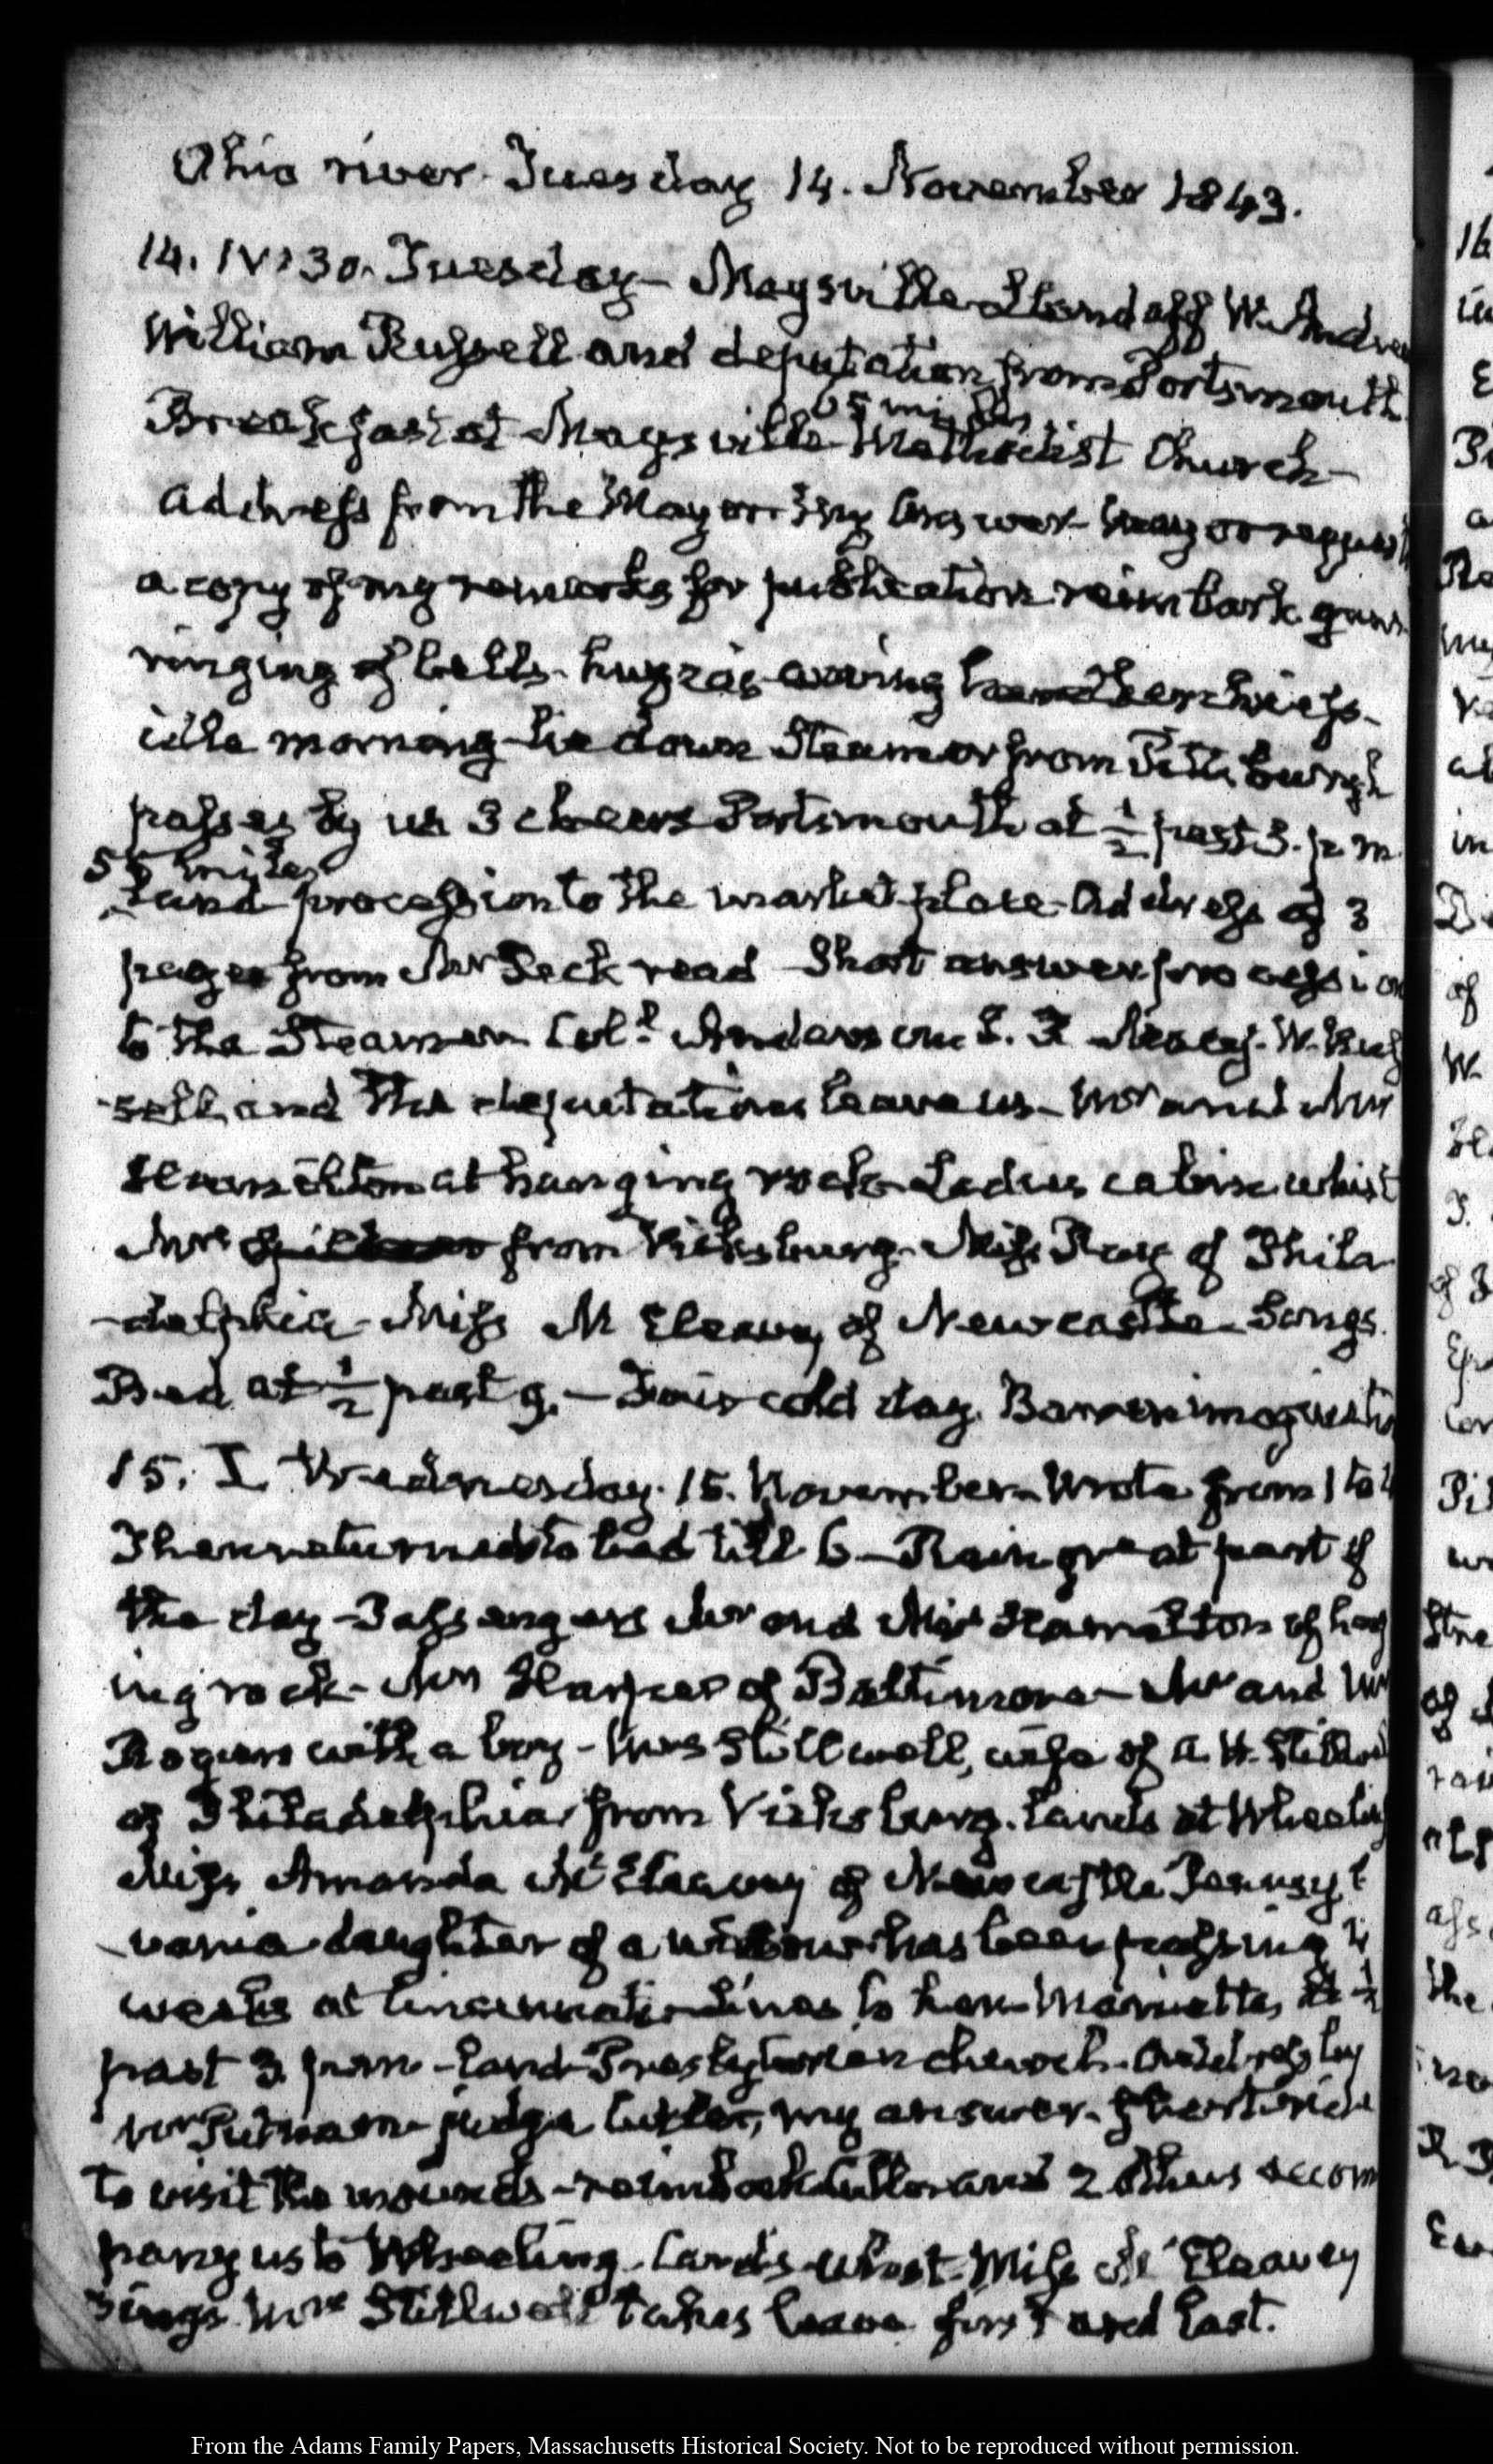 Ohio river. Tuesday 14. November 1843.
14. IV:30. Tuesday - Maysville - Land off W. Andrew
William Russell and deputation from Portsmouth
65 miles
Breakfast at Maysville Methodist Church -
Address from the Mayor - my answer - Mayor requests
a copy of my remarks for publication. reimbark. guns
ringing of bells - huzzas - waving handkerchiefs -
idle morning - lie down Steamer from Pittsburgh
passes by us 3 cheers Portsmouth at ½ past 3. p m.
55 miles
Land procession to the market place - Address of 3
pages from Mr Peck read - Short answer procession
to the Steamer Coll. Anderson W. Rus
-sell, and the deputations leave us - Mr and Mrs
Hamilton at hanging rock - Ladies cabin whist
Mrs from Vicksburg. Miss Ray of Phila
-delphia - Miss M Eleavey of Newcastle - Songs.
Bed at ½ past 9. - Fair cold day. Barren imagination
15. I. Wednesday. 15. November - Wrote from 1 to 4
Then returned to bed till 6 - Rain great part of
the day - Passengers Mr and Mrs Hamilton of hang
ing rock - Mrs Harper of Baltimore - Mr and Mrs
Rogers with a boy - Mrs Stillwell, wife of A. H. Stillwell
of Philadelphia from Vicksburg. lands at Wheeling
Miss Amanda Mc Eleavey of Newcastle Pennsyl
-vania daughter of a widow has been passing
weeks at Cincinnati - Marietta, at ½
past 3 p.m - Land Presbyterian church. Address by
Mr Putnam - judge Cutler, my answer. Short ride
to visit the mounds - reimbark Cutler and 2 others accom
pany us to Wheeling - Cards - whist - Miss Mc Eleavey
sings Mrs Stillwell takes leave first and last.
From the Adams Family Papers, Massachusetts Historical Society. Not to be reproduced without permission.